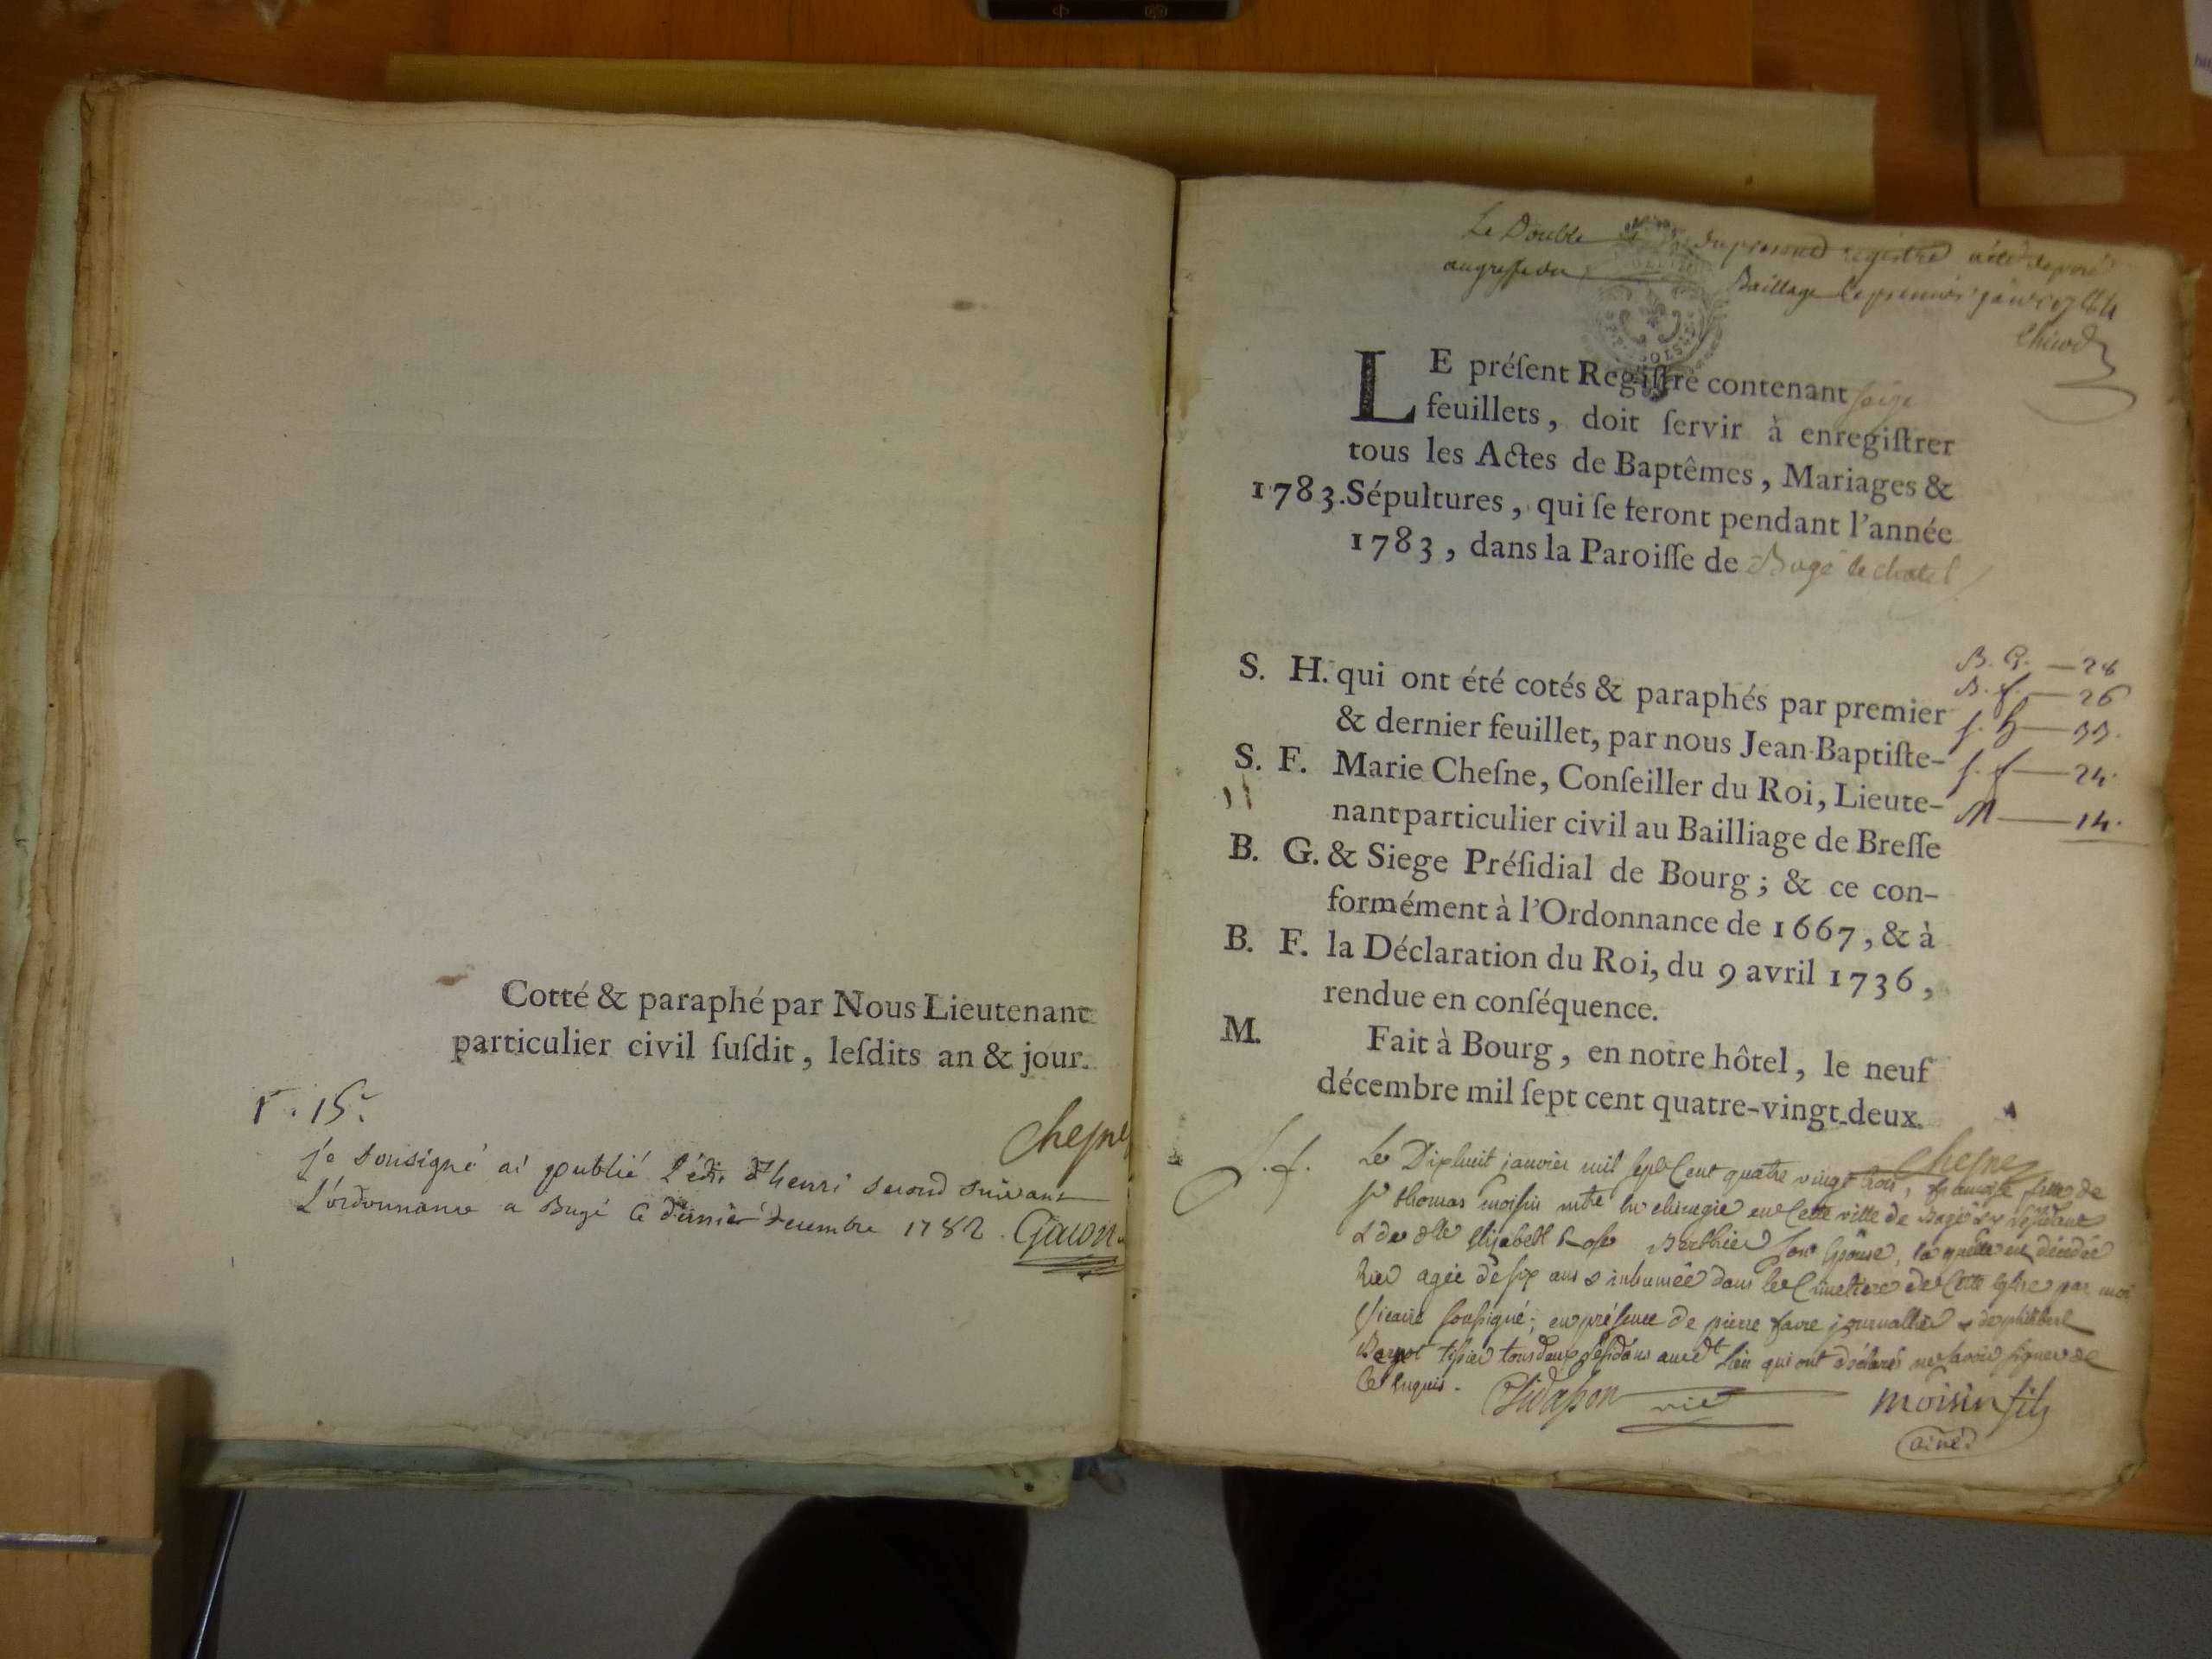 Cotté & paraphé par Nous Lieutenant
particulier civil ſuſdit, leſdits an & jour.
Cheſne
je sousigné ai publié l'édi d'henri second suivant
l'ordonnance a Bagé le dernier decembre 1782. Gacon
Le Double du present registre a été déposé
au greffe du Baillage le premier janvier
LE préſent Regiſtre contenant seize
feuillets, doit ſervir à enregiſtrer
tous les Actes de Baptêmes, Mariages &
1783. Sépultures, qui ſe feront pendant l'année
1783, dans la Paroiſſe de Bagé le chatel
S. H. qui ont été cotés & paraphés par premier
& dernier feuillet, par nous Jean-Baptiſte-
S. F. Marie Cheſne, Conſeiller du Roi, Lieute-
11 nant particulier civil au Bailliage de Breſſe
B. G. & Siege Préſidial de Bourg; & ce con-
formément à l'Ordonnance de 1667, & à
B. F. la Déclaration du Roi, du 9 avril 1736,
rendue en conſéquence.
M. Fait à Bourg, en notre hôtel, le neuf
décembre mil ſept cent quatre-vingt-deux.
B. G. — 28
B. f. — 26
f. h — 33.
f. f — 24.
M — 14.
Cheſne
S. f. Le Dixhuit janvier mil sept Cent quatre vingt trois, françoise fille de
sr thomas moisin mtre en chirugie en Cette ville de Bagé & y résidant
& de dlle Elizabeth Rose Berthier son Epouse, laquelle est décédée
hier agée de six ans & inhumée dans le Cimetiere de Cette Eglise par moi
Vicaire soussigné; en présence de pierre favre journallier & de philibert
tissier tous deux résidans audt lieu qui ont déclaré ne savoir signer de
Ce Enquis.
vic
moisin fils
ainé